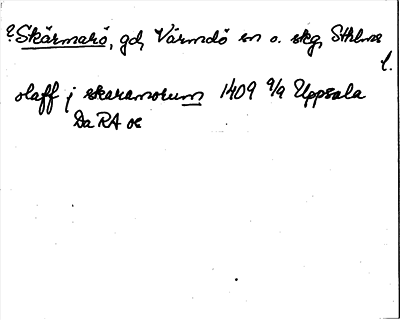 ? Skärmarö, gd, Värmdö sn o. skg, Sthlms
l.
olaff j skaramorum 1409 9/9 Uppsala
Da RA oc